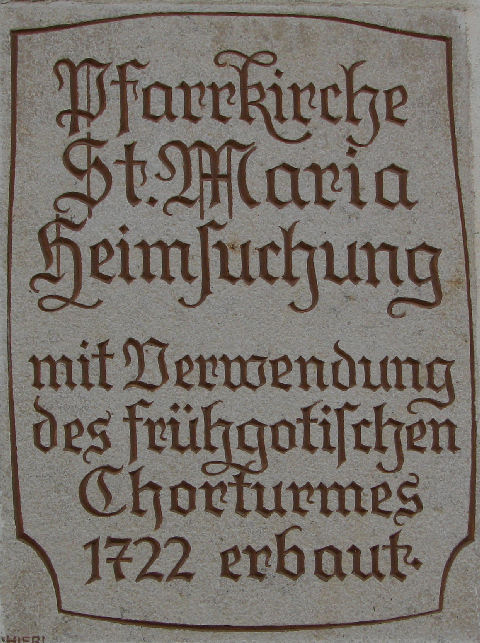 Pfarrkirche
St. Maria
Heimſuchung
mit Verwendung
des frühgotiſchen
Chorturmes
1722 erbaut.